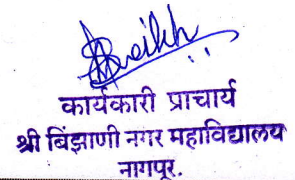 कार्यकारी प्राचार्य
श्री बिंझाणी नगर महाविद्यालय
नागपूर.